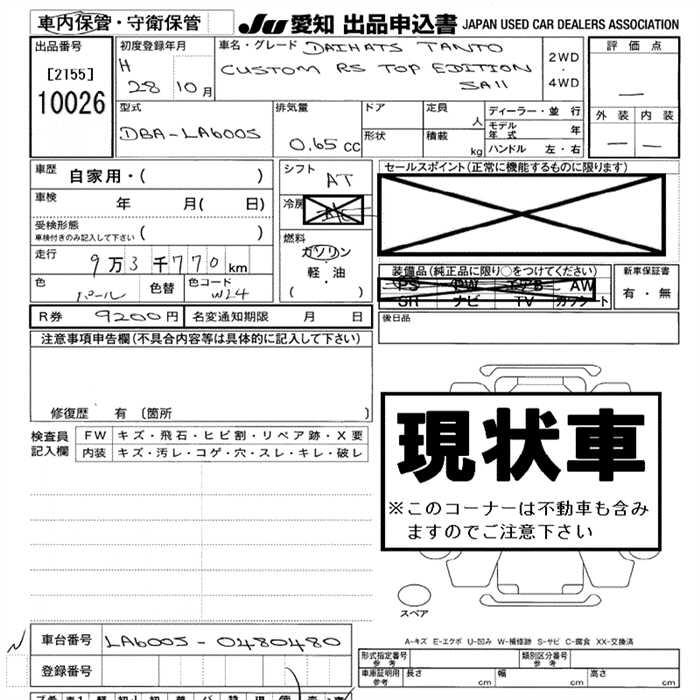 車内保管・守衛保管 JU 愛知 出品申込書 JAPAN USED CAR DEALERS ASSOCIATION
出品番号 初度登録年月 車名・グレード DAIHATS TANTO 2WD 評価点
[2155] H 28 10月 CUSTOM RS TOP EDITION ・
10026 SAII 4WD
型式 排気量 ドア 定員 人 ディーラー・並行 外装 内装
DBA-LA600S 0.65cc 形状 積載 kg モデル年式 年
ハンドル 左・右
車歴 自家用・( ) シフト AT セールスポイント(正常に機能するものに限ります)
車検 年 月( 日) 冷房
受検形態 ( )
車検付きのみ記入して下さい
走行 9万3千770km 燃料 ガソリン 軽・油 ( )
装備品(純正品に限り○をつけてください) 新車保証書
PS PW エアB AW 有・無
SR ナビ TV カワシート
色 パール 色替 色コード W24
R券 9200円 名変通知期限 月 日 後日品
注意事項申告欄(不具合内容等は具体的に記入して下さい)
修復歴 有 [箇所 ]
検査員記入欄 FW キズ・飛石・ヒビ割・リペア跡・X要
内装 キズ・汚レ・コゲ・穴・スレ・キレ・破レ
現状車
※このコーナーは不動車も含み
ますのでご注意下さい
スペア
車台番号 LA600S-0480480
A-キズ E-エクボ U-凹み W-補修跡 S-サビ C-腐食 XX-交換済
登録番号 形式指定番号 参考 類別区分番号 参考
車庫証明用 参考 長さ cm 幅 cm 高さ cm